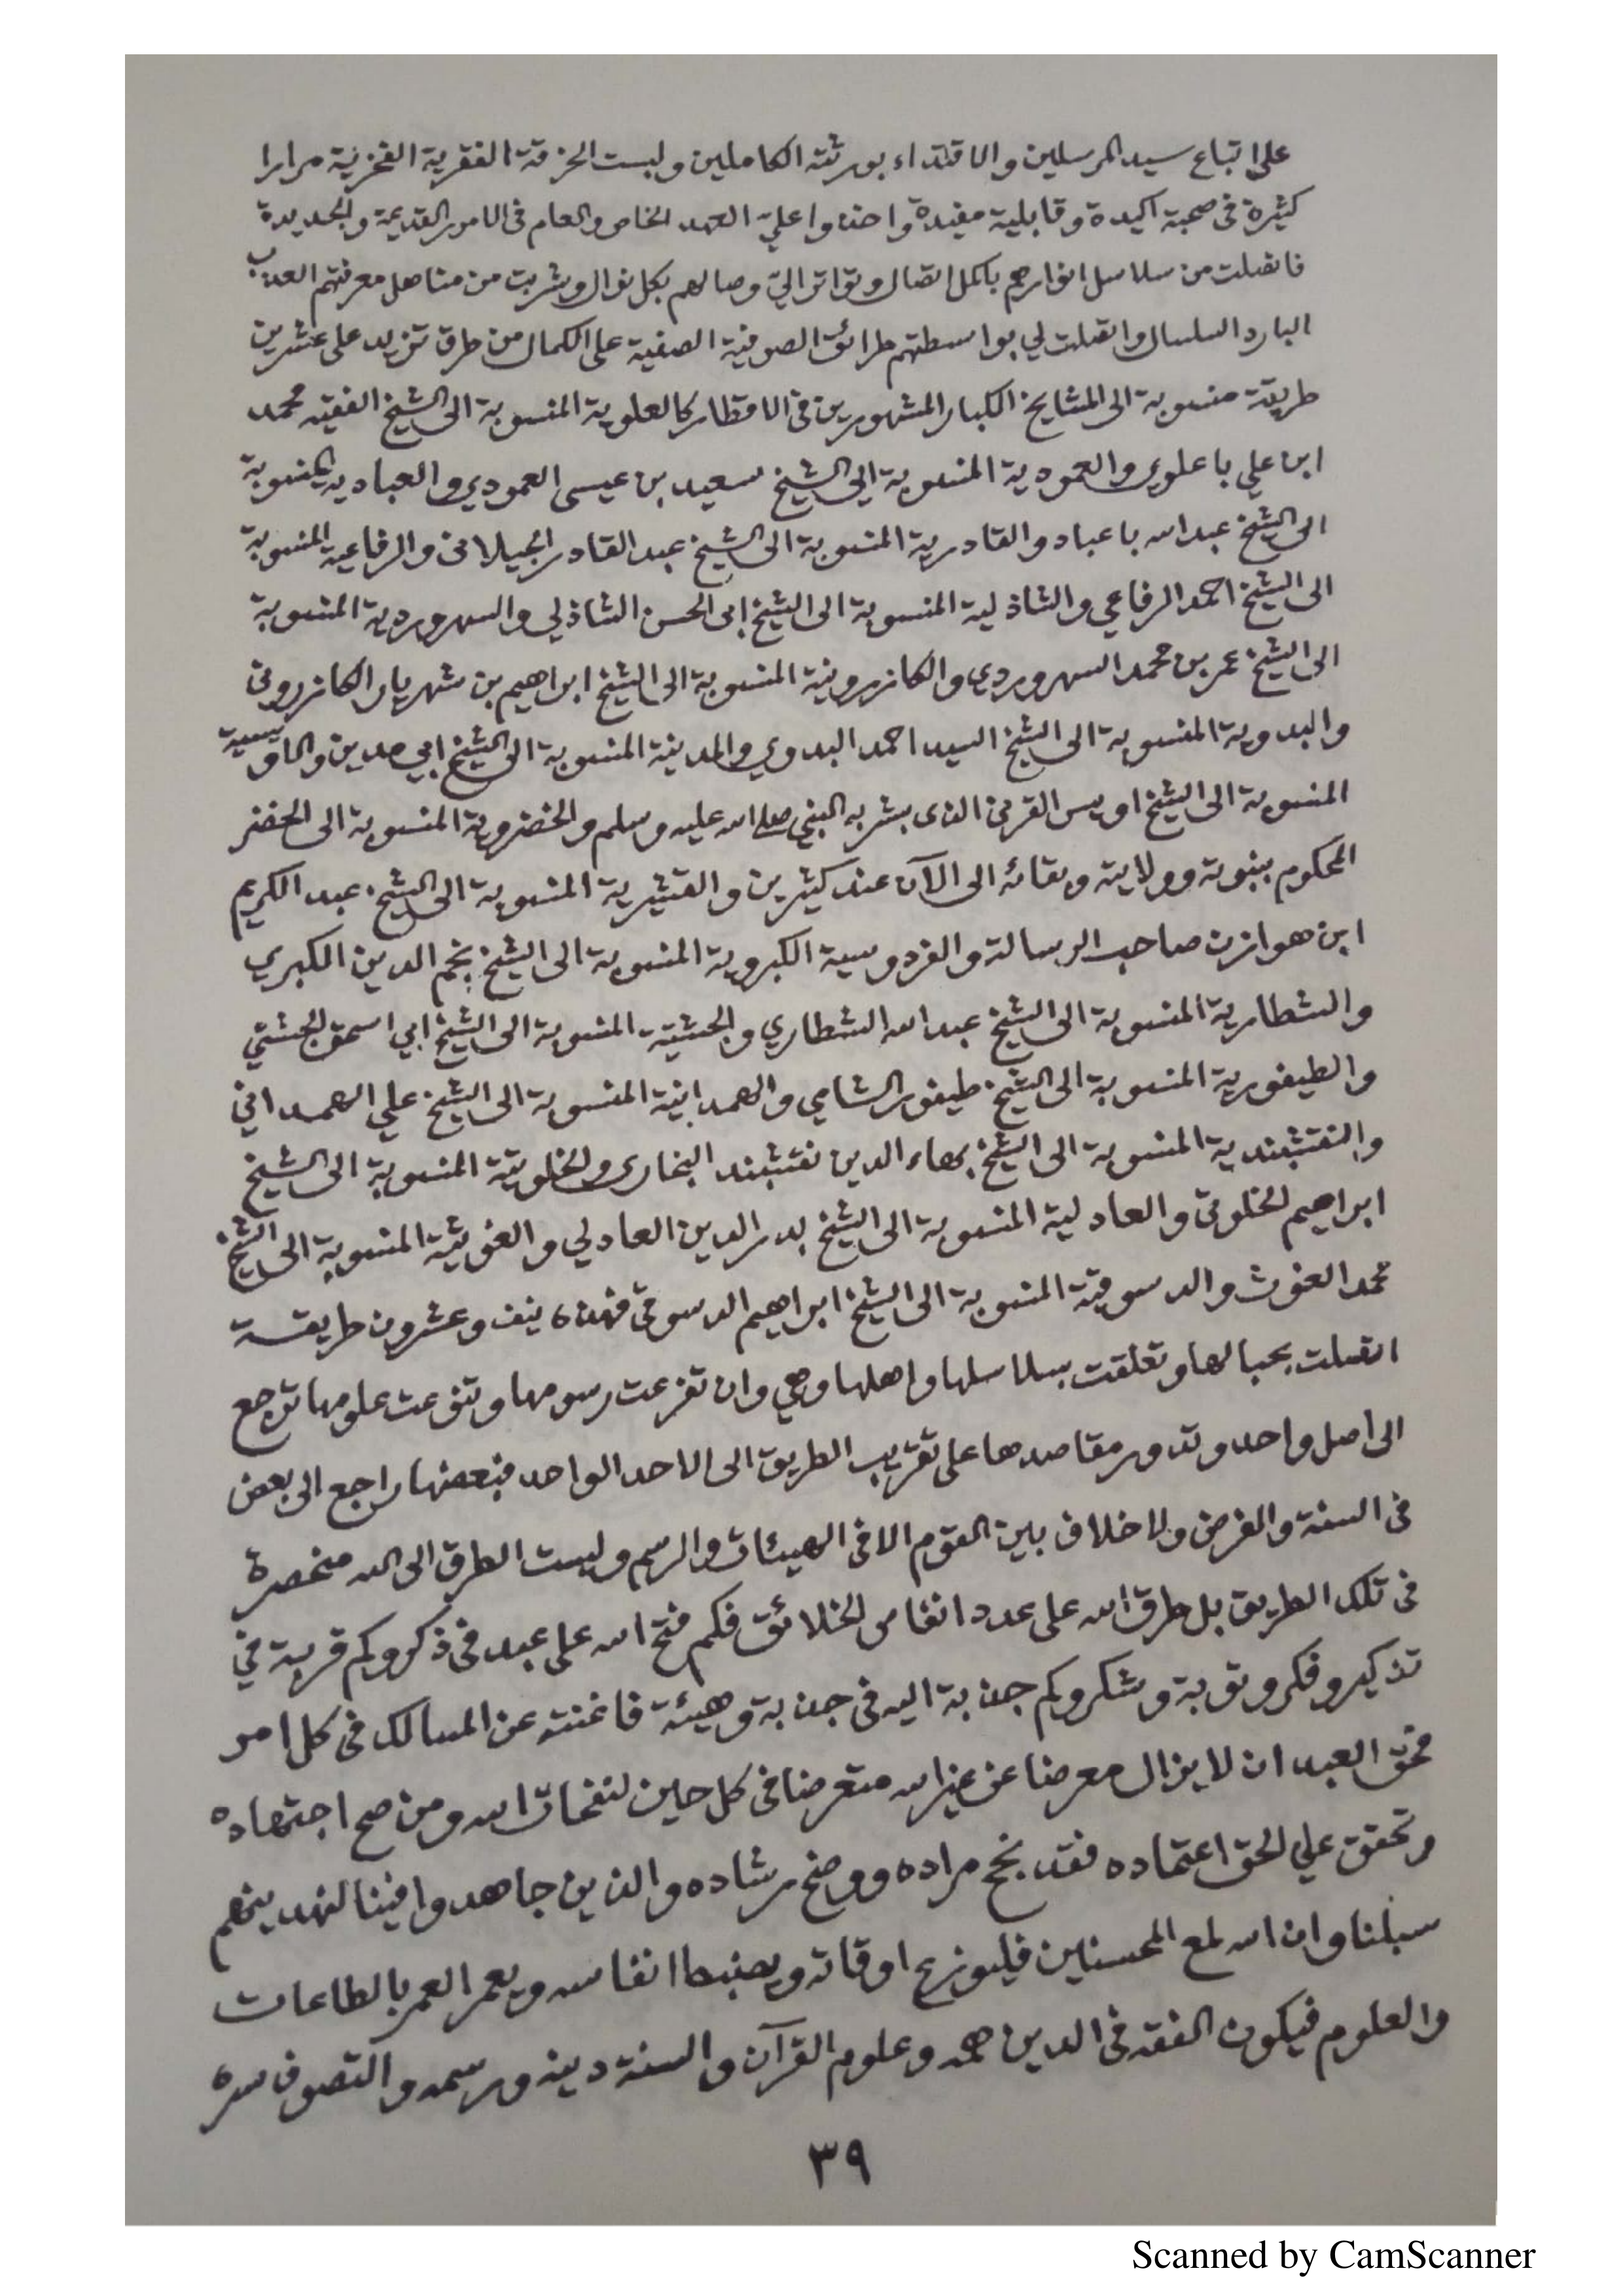 على اتباع سيد المرسلين والاقتداء بورثته الكاملين ولبست الخرقة الفقرية الفخرية مرارا
كثيرة في صحبة اكيدة وقابلية مفيدة واخذوا علي العهد الخاص والعام في الامور القديمة والجديدة
فاتصلت من سلاسل انوارهم باكمل اتصال وتواتر الي وصالهم بكل نوال وشربت من مناهل معرفتهم العذب
البارد السلسال واتصلت لي بواسطتهم طرائق الصوفية الصفية على الكمال من طرق تزيد على عشرين
طريقة منسوبة الى المشايخ الكبار المشهورين في الاقطار كالعلوية المنسوبة الى الشيخ الفقيه محمد
ابن علي باعلوي والعمودية المنسوبة الى الشيخ سعيد بن عيسى العمودي والعبادية المنسوبة
الى الشيخ عبد الله باعباد والقادرية المنسوبة الى الشيخ عبد القادر الجيلاني والرفاعية المنسوبة
الى الشيخ احمد الرفاعي والشاذلية المنسوبة الى الشيخ ابى الحسن الشاذلي والسهروردية المنسوبة
الى الشيخ عمر بن محمد السهروردي والكازرونية المنسوبة الى الشيخ ابراهيم بن شهريار الكازروني
والبدوية المنسوبة الى الشيخ السيد احمد البدوي والمدينية المنسوبة الى الشيخ ابي مدين والاويسية
المنسوبة الى الشيخ اويس القرني الذى بشر به النبي صلى الله عليه وسلم والخضروية المنسوبة الى الخضر
المحكوم بنبوته وولايته وبقائه الى الآن عند كثيرين والقشيرية المنسوبة الى الشيخ عبد الكريم
ابن هوازن صاحب الرسالة والفردوسية الكبروية المنسوبة الى الشيخ نجم الدين الكبري
والشطارية المنسوبة الى الشيخ عبد الله الشطاري والجشتية المنسوبة الى الشيخ ابي اسحق الجشتي
والطيفورية المنسوبة الى الشيخ طيفور الشامي والهمدانية المنسوبة الى الشيخ علي الهمداني
والنقشبندية المنسوبة الى الشيخ بهاء الدين نقشبند البخارى والخلوتية المنسوبة الى الشيخ
ابراهيم الخلوتي والعادلية المنسوبة الى الشيخ بدر الدين العادلي والغوثية المنسوبة الى الشيخ
محمد الغوث والدسوقية المنسوبة الى الشيخ ابراهيم الدسوقي فهذه نيف وعشرون طريقة
اتصلت بحبالها وتعلقت بسلاسلها واهلها وهي وان تفرعت رسومها وتنوعت علومها ترجع
الى اصل واحد وتدور مقاصدها على تقريب الطريق الى الاحد الواحد فبعضها راجع الى بعض
في السنة والفرض ولا خلاف بين القوم الا في الهيئات والرسم وليست الطرق الى الله منحصرة
في تلك الطريق بل طرق الله على عدد انفاس الخلائق فكم فتح الله على عبد في ذكر وكم قربة في
تذكير وفكر وتوبة وشكر وكم جذبة اليه في جذبة وهيئة فاغنته عن المسالك في كل امر
فحق العبد ان لا يزال معرضا عن غير الله متعرضا في كل حين لنفحات الله ومن صح اجتهاده
وتحقق علي الحق اعتماده فقد نجح مراده ووضح رشاده والذين جاهدوا فينا لنهدينهم
سبلنا وان الله لمع المحسنين فليوزع اوقاته ويضبط انفاسه ويعمر العمر بالطاعات
والعلوم فيكون الفقه في الدين همه وعلوم القرآن والسنة دينه ورسمه والتصوف سره
٣٩
Scanned by CamScanner